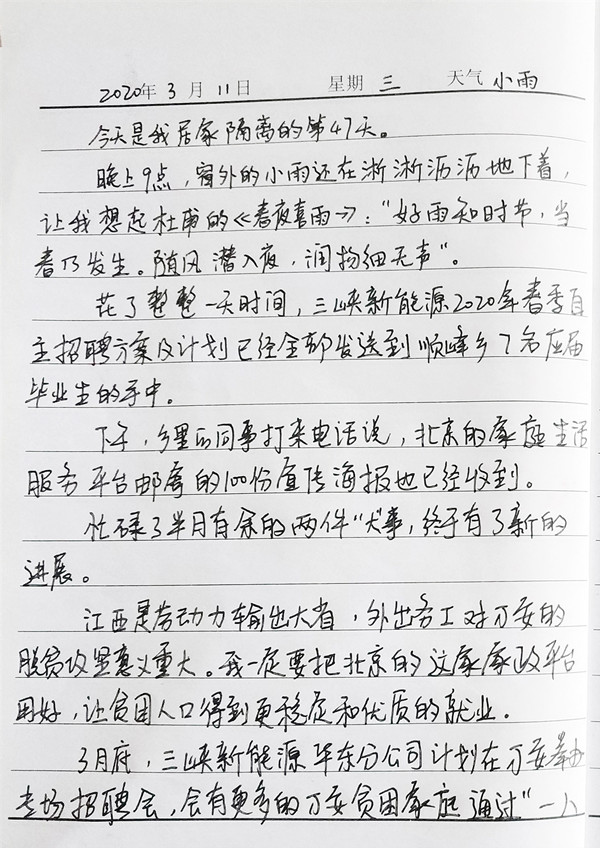 2020年 3 月 11 日 星期 三 天气 小雨
今天是我居家隔离的第47天。
晚上9点，窗外的小雨还在淅淅沥沥地下着，
让我想起杜甫的《春夜喜雨》："好雨知时节，当
春乃发生。随风潜入夜，润物细无声"。
花了整整一天时间，三峡新能源2020年春季自
主招聘方案及计划已经全部发送到顺峰乡7名应届
毕业生的手中。
下午，乡里的同事打来电话说，北京的家庭生活
服务平台邮寄的100份宣传海报也已经收到。
忙碌了半月有余的两件"大事，终于有了新的
进展。
江西是劳动力输出大省，外出务工对万安的
脱贫攻坚意义重大。我一定要把北京的这家家政平台
用好，让贫困人口得到更稳定和优质的就业。
3月底，三峡新能源华东分公司计划在万安举办
专场招聘会，会有更多的万安贫困家庭通过"一人